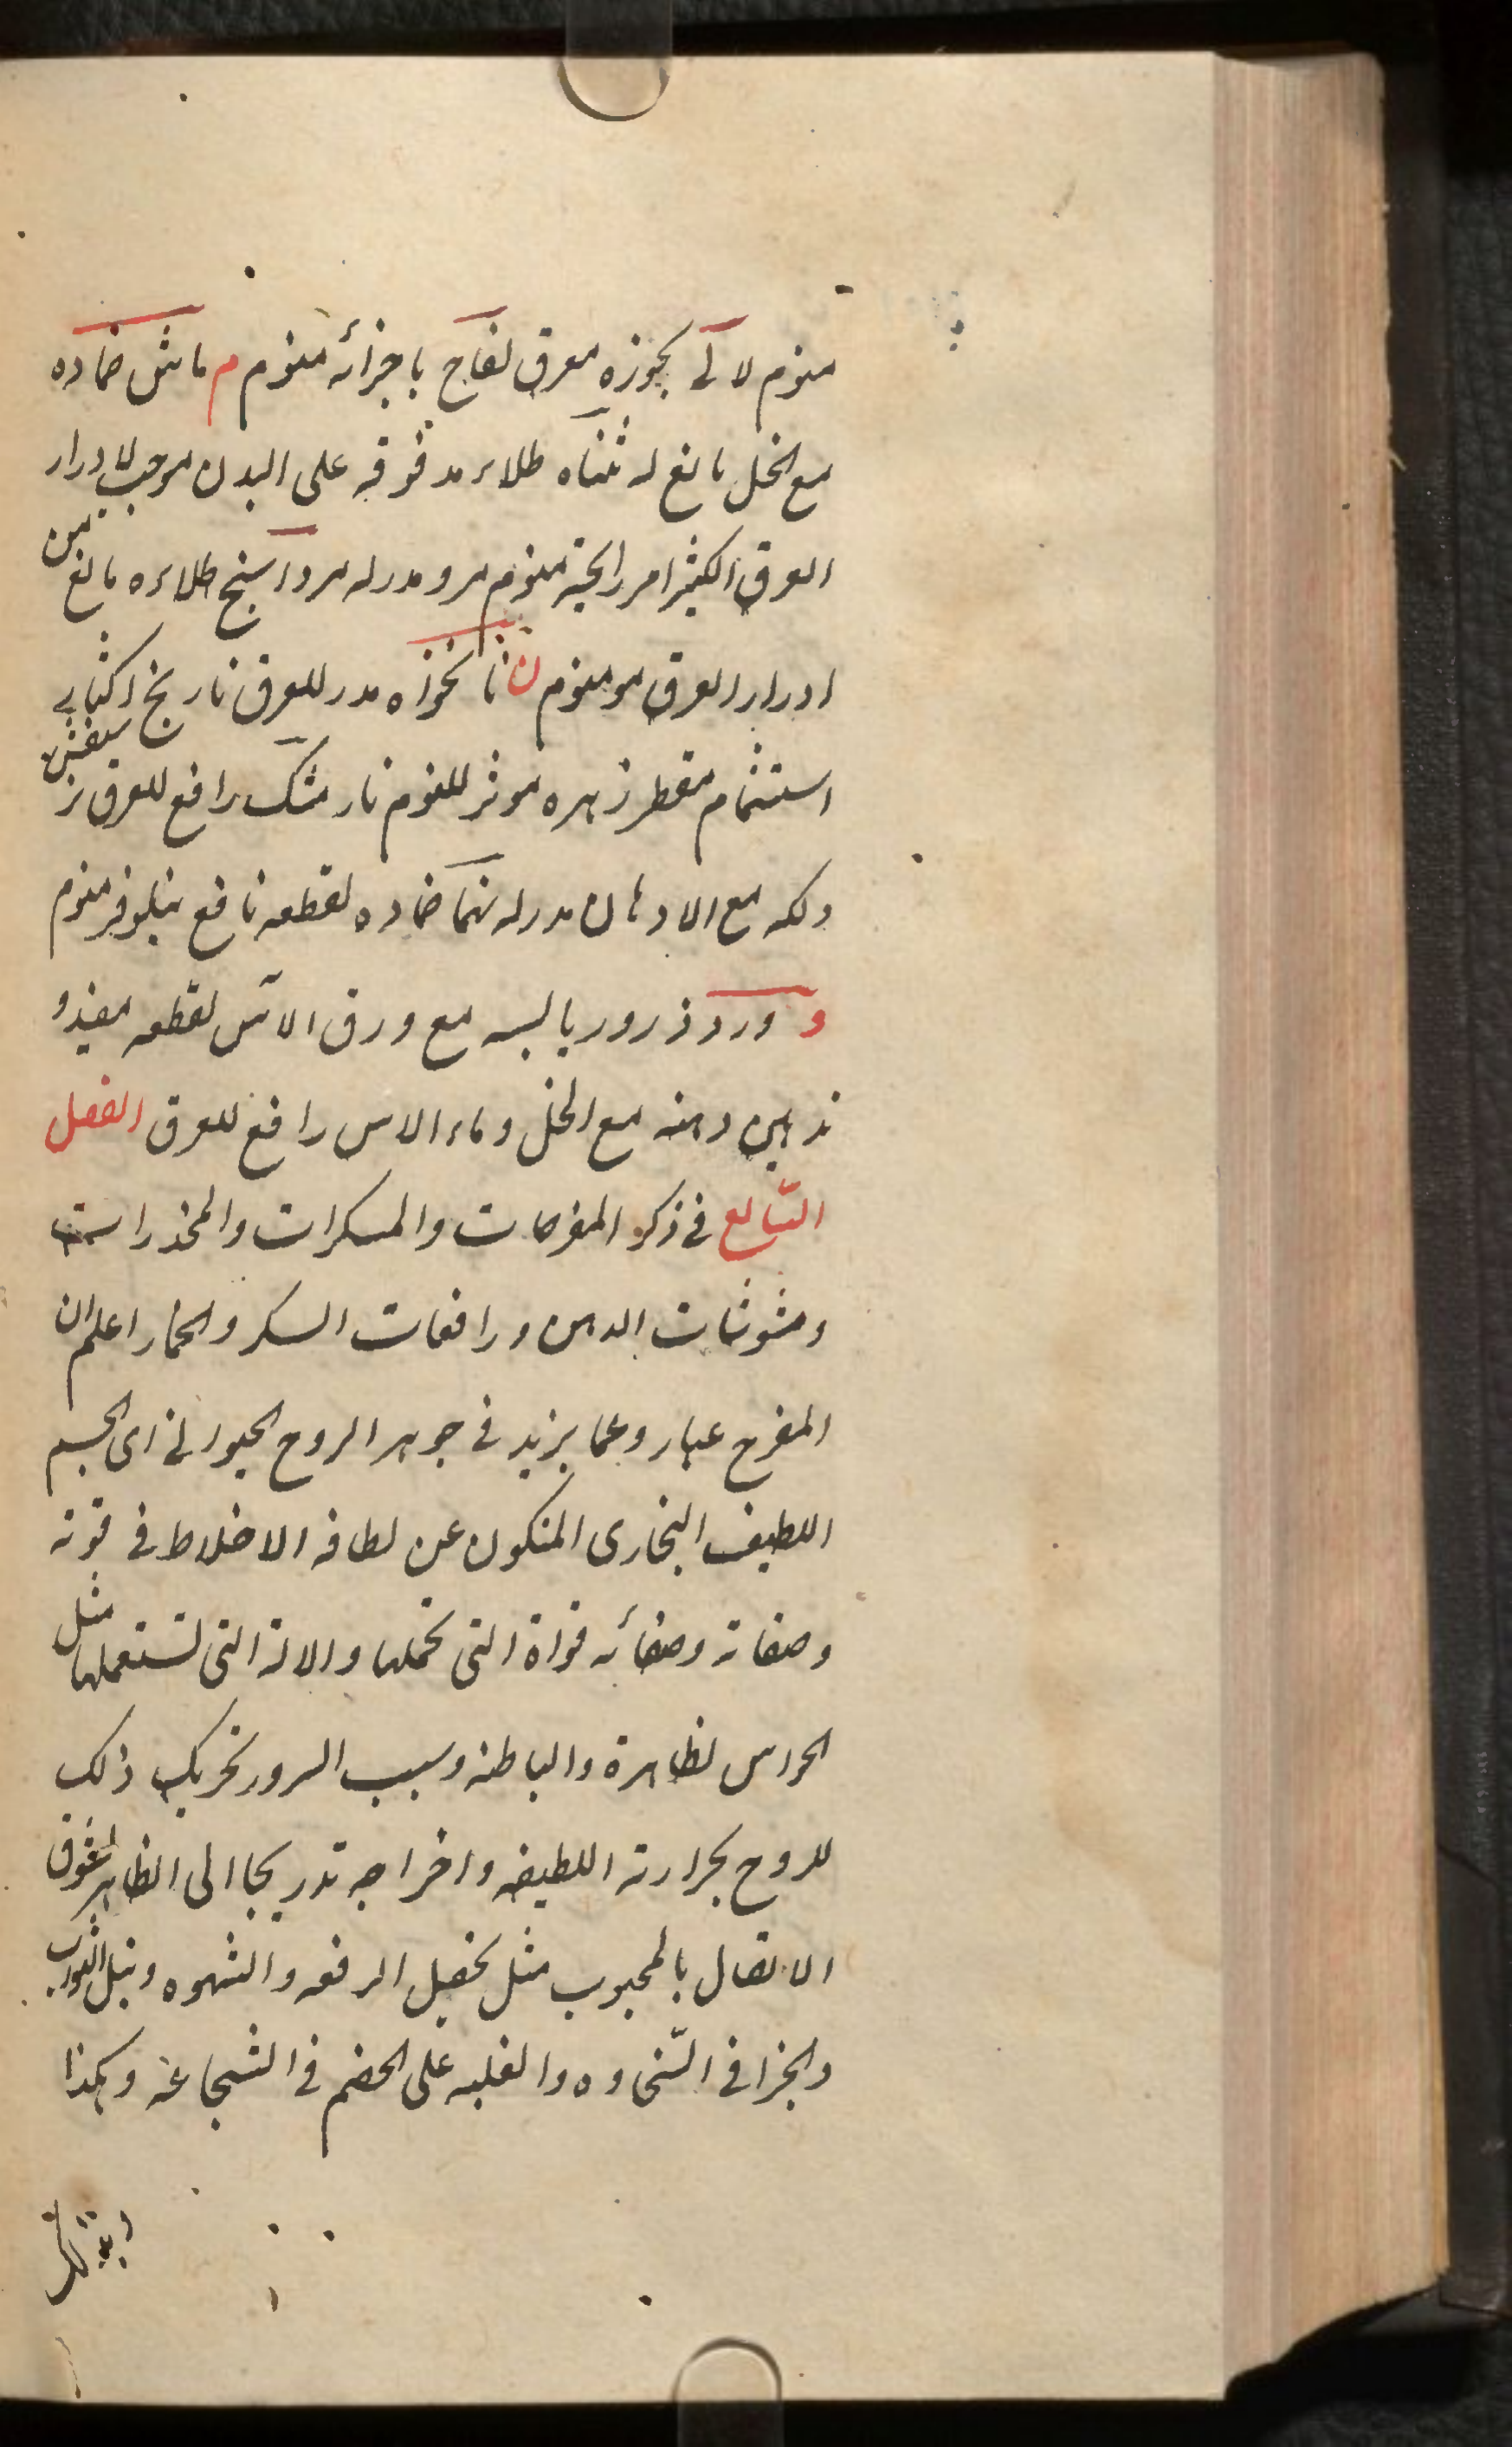 منوم لا لى بخوره معرق لفاح باجزائه منوم م ماش ضماده
مع الخل مانع له مثناه طلاء مدقوقه على البدن موجب لادرار
العرق الكثير امر رايحته منوم مرو مدر له مردا سنج طلاءه مانع من
ادرار العرق مو منوم ن نانخواه مدر للعرق نارنج اكثار
استشمام مقطر زهره موثر للنوم نار مشك رافع للعرق
دلكه مع الادهان مدر له ضماده لقطعه نافع نيلوفر منوم
و ورد ذرور يابسه مع ورق الاس لقطعه مفيد و
تدهين دهنه مع الخل و ماء الاس رافع للعرق الفصل
السّابع فى ذكر المفرحات والمسكرات والمخدرات
ومشوشات الذهن ورافعات السكر والخمار اعلم ان
المفرح عباره عما يزيد فى جوهر الروح الحيوانى اى الجسم
اللطيف البخارى المتكون عن لطافه الاخلاط فى قوته
وصفاته وصفائه قواة التى تحملها والالة التى تستعملها مثل
الحواس لظاهرة والباطنه وسبب السرور تحريك ذلك
للروح بحرارته اللطيفه واخراجه تدريجا الى الظاهر لشوق
الاتصال بالمحبوب مثل تحصيل الرفعه والشهوه ونيل الثواب
والجزا فى السّخاوه والغلبه على الخصم فى الشجاعه وهكذا